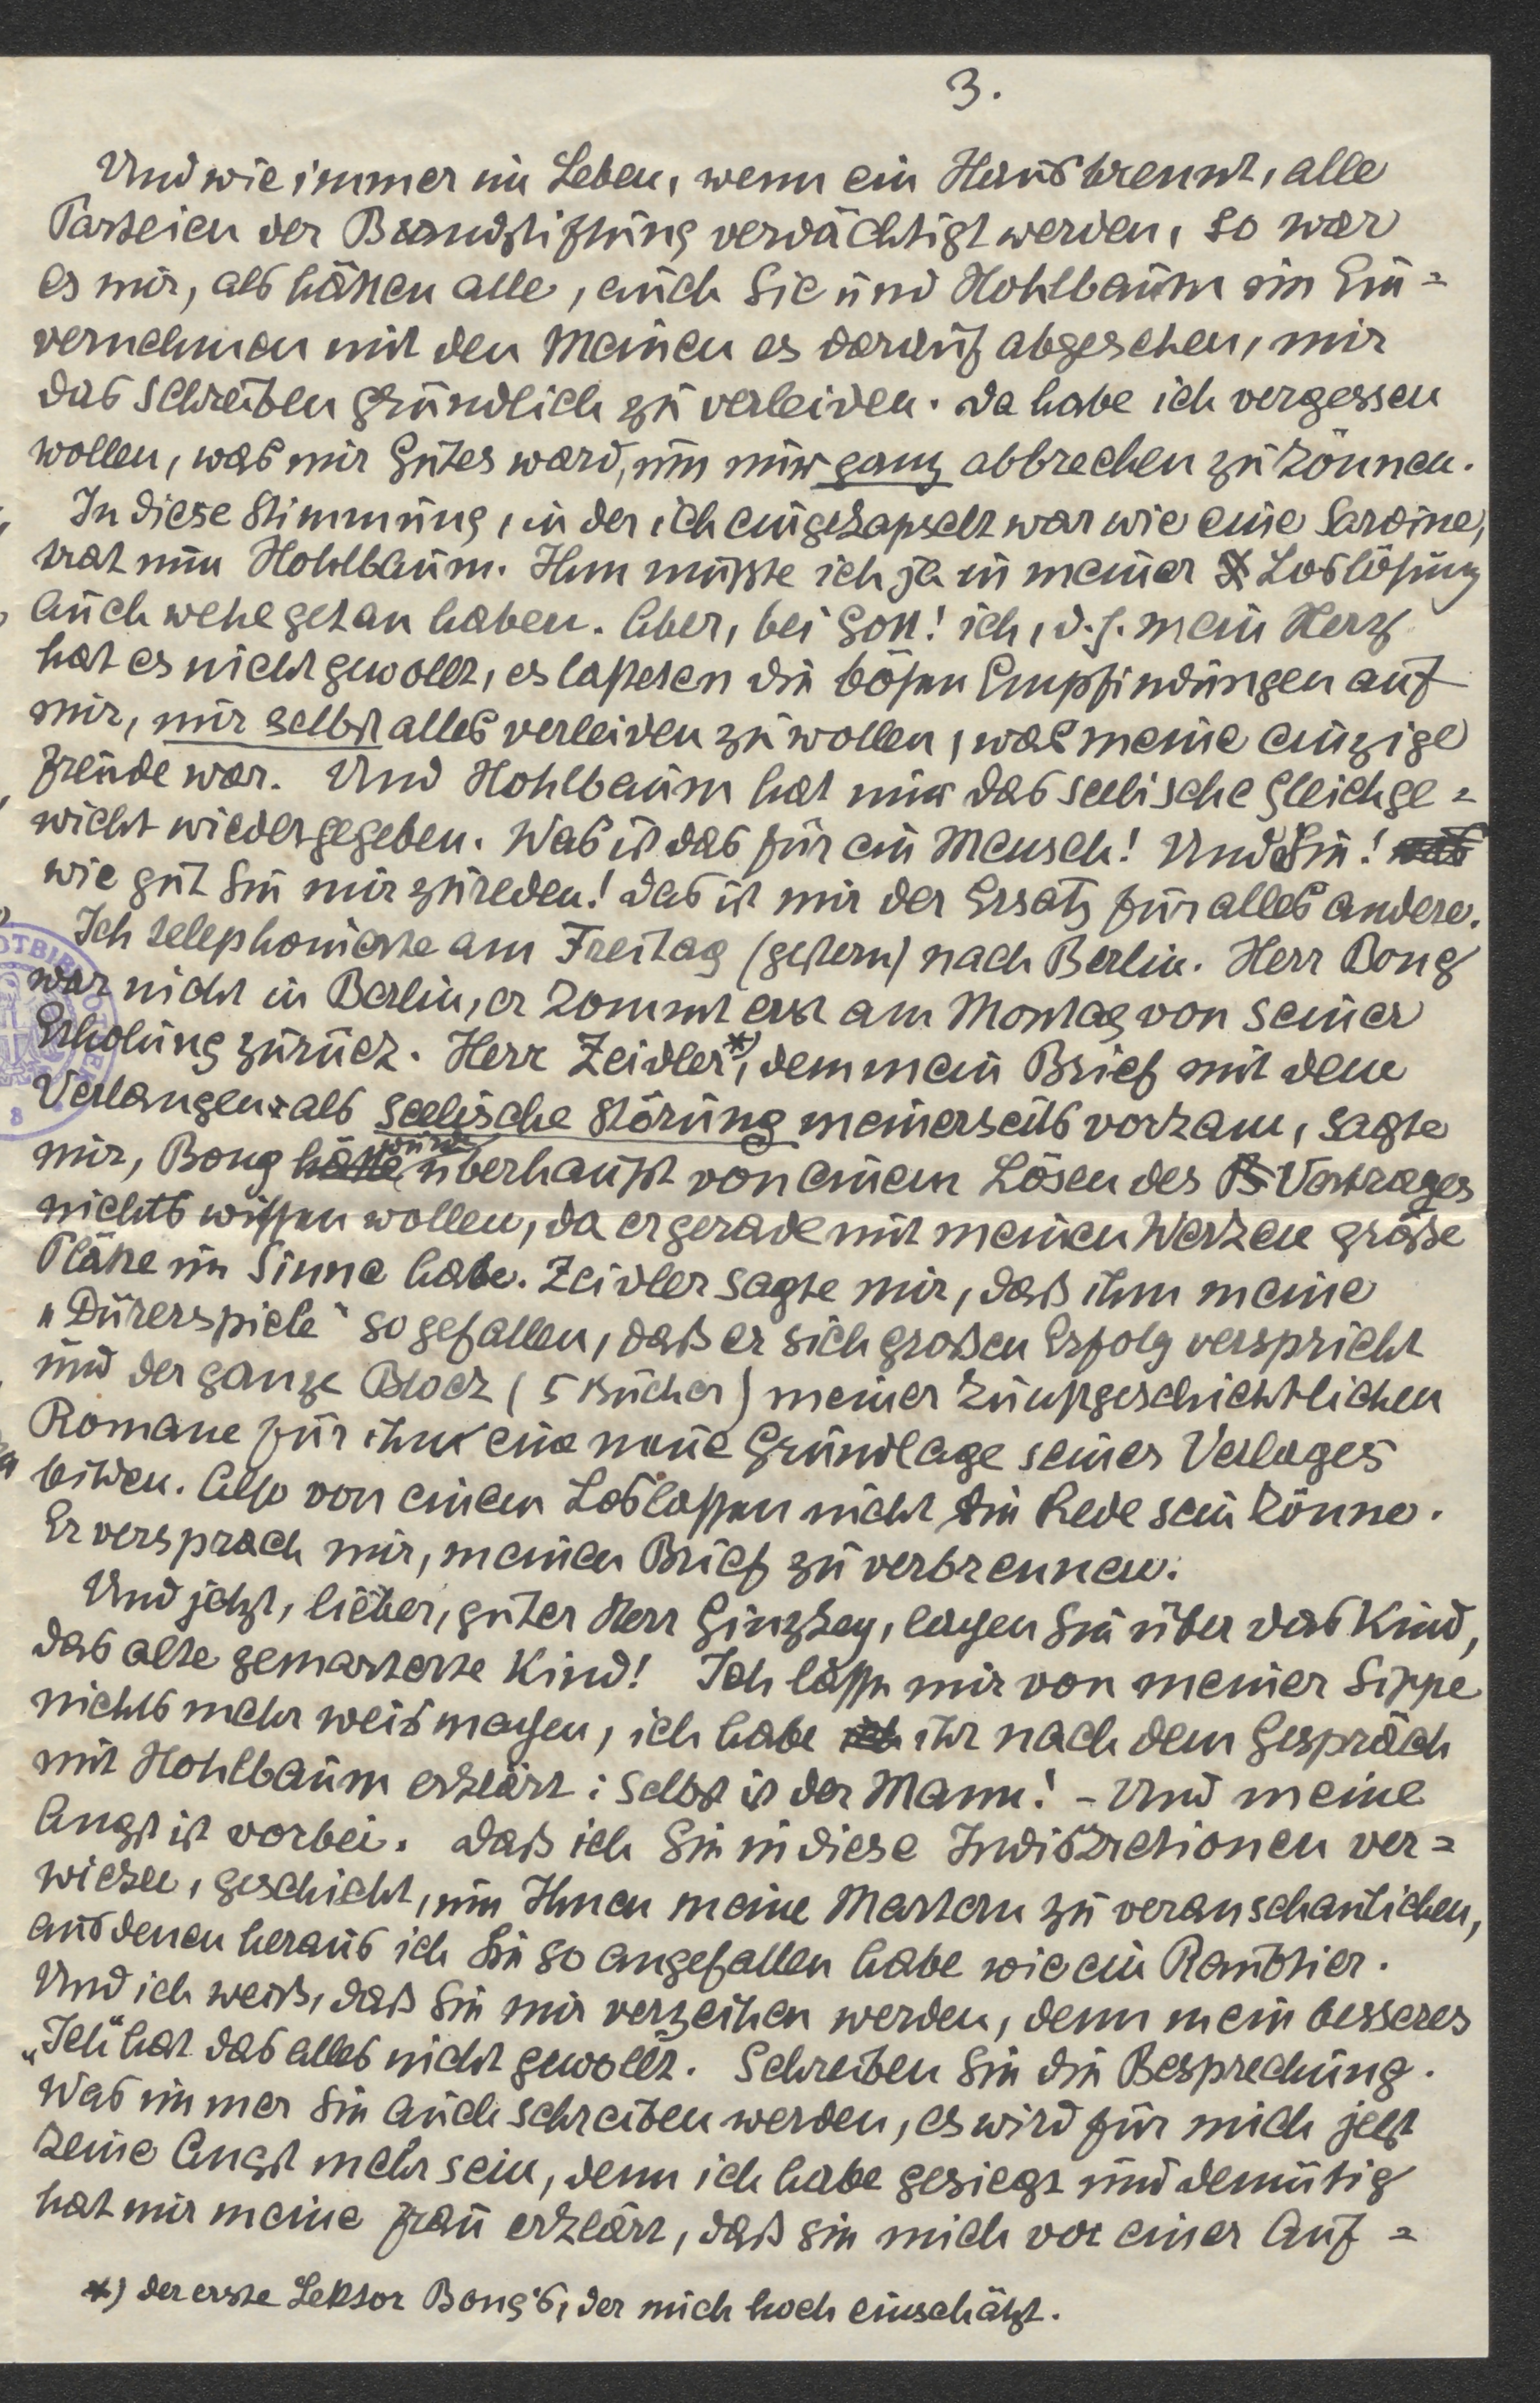 3.
Und wie immer im Leben, wenn ein Haus brennt, alle
Parteien der Brandstiftung verdächtigt werden, so war
es mir, als hätten alle, auch Sie und Hohlbaum im Ein=
vernehmen mit den Meinen es darauf abgesehen, mir
das Schreiben gründlich zu verleiden. Da habe ich vergessen
wollen, was mir Gutes ward, um nur ganz abbrechen zu können.
In diese Stimmung, in der ich eingekapselt war wie eine Sardine,
trat nun Hohlbaum. Ihm mußte ich ja in meiner Loslösung
auch wehe getan haben. Aber, bei Gott! ich, d. h. mein Herz
hat es nicht gewollt, es lasteten die bösen Empfindungen auf
mir, mir selbst alles verleiden zu wollen, was meine einzige
Freude war. Und Hohlbaum hat mir das seelische Gleichge=
wicht wiedergegeben. Was ist das für ein Mensch! Und Sie! was
wie gut Sie mir zureden! Das ist mir der Ersatz für alles andere.
Ich telephonierte am Freitag (gestern) nach Berlin. Herr Bong
war nicht in Berlin, er kommt erst am Montag von seiner
Erholung zurück. Herr Zeidler*), dem mein Brief mit dem
Verlangen als seelische Störung meinerseits vorkam, sagte
mir, Bong hätte würde überhaupt von einem Lösen des Vertrages
nichts wissen wollen, da er gerade mit meinen Werken große
Pläne im Sinne habe. Zeidler sagte mir, daß ihm meine
"Dürerspiele" so gefallen, daß er sich großen Erfolg verspricht
und der ganze Block (5 Bücher) meiner kunstgeschichtlichen
Romane für ihn eine neue Grundlage seines Verlages
bilden. Also von einem Loslassen nicht die Rede sein könne.
Er versprach mir, meinen Brief zu verbrennen.
Und jetzt, lieber, guter Herr Ginzkey, lachen Sie über das Kind,
das alte gemarterte Kind! Ich lasse mir von meiner Sippe
nichts mehr weismachen, ich habe ich ihr nach dem Gespräch
mit Hohlbaum erklärt: Selbst ist der Mann! – Und meine
Angst ist vorbei. Daß ich Sie in diese Indiskretionen ver=
wickle, geschieht, um Ihnen meine Martern zu veranschaulichen,
aus denen heraus ich Sie so angefallen habe wie ein Raubtier.
Und ich weiß, daß Sie mir verzeihen werden, denn mein besseres
„Ich" hat das alles nicht gewollt. Schreiben Sie die Besprechung.
Was immer Sie auch schreiben werden, es wird für mich jetzt
keine Angst mehr sein, denn ich habe gesiegt und demütig
hat mir meine Frau erklärt, daß sie mich vor einer Auf=
*) der erste Lektor Bong's, der mich hoch einschätzt.